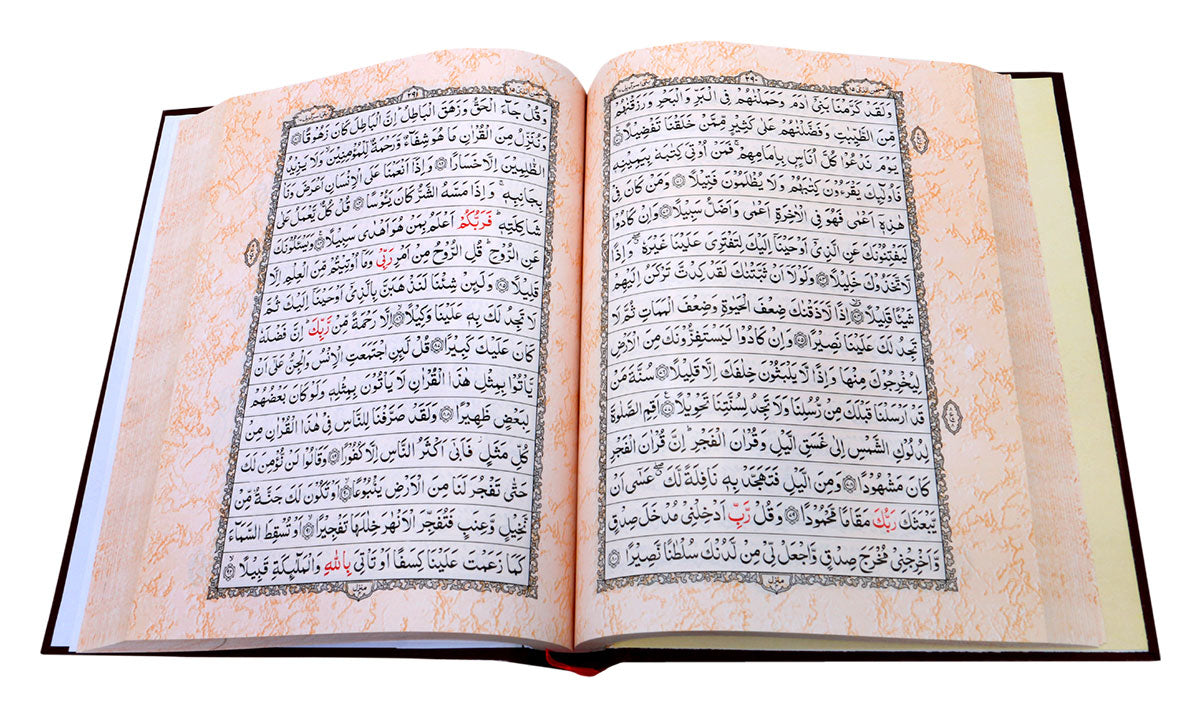 ٢٩٠
وَلَقَدْ كَرَّمْنَا بَنِيْٓ اٰدَمَ وَحَمَلْنٰهُمْ فِي الْبَرِّ وَالْبَحْرِ وَرَزَقْنٰهُمْ
مِّنَ الطَّيِّبٰتِ وَفَضَّلْنٰهُمْ عَلٰى كَثِيْرٍ مِّمَّنْ خَلَقْنَا تَفْضِيْلًا ۝
يَوْمَ نَدْعُوْا كُلَّ اُنَاسٍۢ بِاِمَامِهِمْ ۚ فَمَنْ اُوْتِيَ كِتٰبَهٗ بِيَمِيْنِهٖ
فَاُولٰٓئِكَ يَقْرَءُوْنَ كِتٰبَهُمْ وَلَا يُظْلَمُوْنَ فَتِيْلًا ۝ وَمَنْ كَانَ فِيْ
هٰذِهٖٓ اَعْمٰى فَهُوَ فِي الْاٰخِرَةِ اَعْمٰى وَاَضَلُّ سَبِيْلًا ۝ وَاِنْ كَادُوْا
لَيَفْتِنُوْنَكَ عَنِ الَّذِيْٓ اَوْحَيْنَآ اِلَيْكَ لِتَفْتَرِيَ عَلَيْنَا غَيْرَهٗ ۖ وَاِذًا
لَّاتَّخَذُوْكَ خَلِيْلًا ۝ وَلَوْلَآ اَنْ ثَبَّتْنٰكَ لَقَدْ كِدْتَّ تَرْكَنُ اِلَيْهِمْ
شَيْئًا قَلِيْلًا ۝ اِذًا لَّاَذَقْنٰكَ ضِعْفَ الْحَيٰوةِ وَضِعْفَ الْمَمَاتِ ثُمَّ لَا
تَجِدُ لَكَ عَلَيْنَا نَصِيْرًا ۝ وَاِنْ كَادُوْا لَيَسْتَفِزُّوْنَكَ مِنَ الْاَرْضِ
لِيُخْرِجُوْكَ مِنْهَا وَاِذًا لَّا يَلْبَثُوْنَ خِلٰفَكَ اِلَّا قَلِيْلًا ۝ سُنَّةَ مَنْ
قَدْ اَرْسَلْنَا قَبْلَكَ مِنْ رُّسُلِنَا وَلَا تَجِدُ لِسُنَّتِنَا تَحْوِيْلًا ۝ اَقِمِ الصَّلٰوةَ
لِدُلُوْكِ الشَّمْسِ اِلٰى غَسَقِ الَّيْلِ وَقُرْاٰنَ الْفَجْرِ ۭ اِنَّ قُرْاٰنَ الْفَجْرِ
كَانَ مَشْهُوْدًا ۝ وَمِنَ الَّيْلِ فَتَهَجَّدْ بِهٖ نَافِلَةً لَّكَ ۖ عَسٰٓى اَنْ
يَّبْعَثَكَ رَبُّكَ مَقَامًا مَّحْمُوْدًا ۝ وَقُلْ رَّبِّ اَدْخِلْنِيْ مُدْخَلَ صِدْقٍ
وَّاَخْرِجْنِيْ مُخْرَجَ صِدْقٍ وَّاجْعَلْ لِّيْ مِنْ لَّدُنْكَ سُلْطٰنًا نَّصِيْرًا ۝
منزل
٢٩١
وَقُلْ جَآءَ الْحَقُّ وَزَهَقَ الْبَاطِلُ ۭ اِنَّ الْبَاطِلَ كَانَ زَهُوْقًا ۝
وَنُنَزِّلُ مِنَ الْقُرْاٰنِ مَا هُوَ شِفَآءٌ وَّرَحْمَةٌ لِّلْمُؤْمِنِيْنَ ۙ وَلَا يَزِيْدُ
الظّٰلِمِيْنَ اِلَّا خَسَارًا ۝ وَاِذَآ اَنْعَمْنَا عَلَى الْاِنْسَانِ اَعْرَضَ وَنَاٰ
بِجَانِبِهٖ ۚ وَاِذَا مَسَّهُ الشَّرُّ كَانَ يَئُوْسًا ۝ قُلْ كُلٌّ يَّعْمَلُ عَلٰى
شَاكِلَتِهٖ ۭ فَرَبُّكُمْ اَعْلَمُ بِمَنْ هُوَ اَهْدٰى سَبِيْلًا ۝ وَيَسْئَلُوْنَكَ
عَنِ الرُّوْحِ ۭ قُلِ الرُّوْحُ مِنْ اَمْرِ رَبِّيْ وَمَآ اُوْتِيْتُمْ مِّنَ الْعِلْمِ اِلَّا
قَلِيْلًا ۝ وَلَئِنْ شِئْنَا لَنَذْهَبَنَّ بِالَّذِيْٓ اَوْحَيْنَآ اِلَيْكَ ثُمَّ
لَا تَجِدُ لَكَ بِهٖ عَلَيْنَا وَكِيْلًا ۝ اِلَّا رَحْمَةً مِّنْ رَّبِّكَ ۭ اِنَّ فَضْلَهٗ
كَانَ عَلَيْكَ كَبِيْرًا ۝ قُلْ لَّئِنِ اجْتَمَعَتِ الْاِنْسُ وَالْجِنُّ عَلٰٓى اَنْ
يَّاْتُوْا بِمِثْلِ هٰذَا الْقُرْاٰنِ لَا يَاْتُوْنَ بِمِثْلِهٖ وَلَوْ كَانَ بَعْضُهُمْ
لِبَعْضٍ ظَهِيْرًا ۝ وَلَقَدْ صَرَّفْنَا لِلنَّاسِ فِيْ هٰذَا الْقُرْاٰنِ مِنْ
كُلِّ مَثَلٍ ۡ فَاَبٰٓى اَكْثَرُ النَّاسِ اِلَّا كُفُوْرًا ۝ وَقَالُوْا لَنْ نُّؤْمِنَ لَكَ
حَتّٰى تَفْجُرَ لَنَا مِنَ الْاَرْضِ يَنْۢبُوْعًا ۝ اَوْ تَكُوْنَ لَكَ جَنَّةٌ مِّنْ
نَّخِيْلٍ وَّعِنَبٍ فَتُفَجِّرَ الْاَنْهٰرَ خِلٰلَهَا تَفْجِيْرًا ۝ اَوْ تُسْقِطَ السَّمَآءَ
كَمَا زَعَمْتَ عَلَيْنَا كِسَفًا اَوْ تَاْتِيَ بِاللّٰهِ وَالْمَلٰٓئِكَةِ قَبِيْلًا ۝
منزل